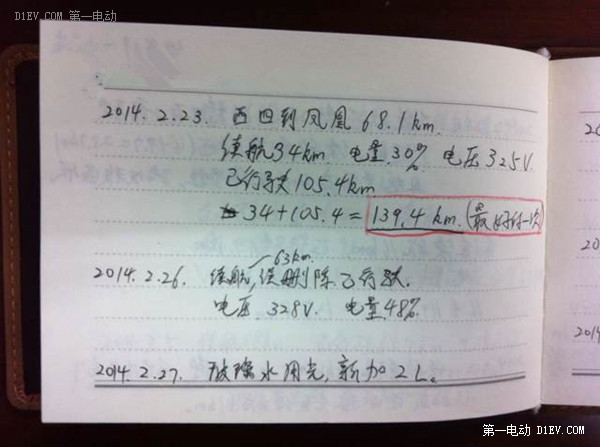 D1EV.COM 第一电动
2014.2.23. 西四到凤凰 68.1km.
续航34km 电量.30% 电压 325V.
已行驶105.4km
34+105.4=139.4 km.(最好的一次)
63km.
2014.2.26. 续航,续删除已行驶.
电压 328V. 电量.48%.
2014.2.27. 玻璃水用光,新加2L。
20
20
2014
第一电动 D1EV.COM